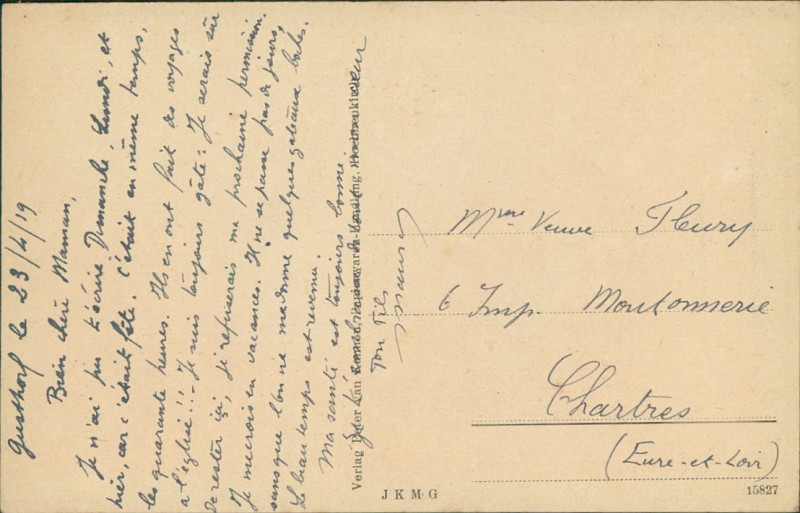 Gusthorf le 23/4/19
Bien chère Maman,
Je n'ai pu t'écrire Dimanche, Lundi, et
hier, car c'était fête. C'était en même temps,
les quarante heures. Ils en ont fait des voyages
a l'église!!! - Je suis toujours gâté: Je serais sûr
de rester ici, je refuserais ma prochaine permission.
Je me crois en vacances. Il ne se passe pas de jours,
sans que l'on ne me donne quelques gateaux boches.
Le beau temps est revenu.
Ma santé est toujours bonne.
Je t'embrasse de tout cœur
Ton Fils
Verlag Peter
JKMG
15827
Mme Veuve Fleury
6 Imp. Moutonnerie
Chartres
(Eure-et-Loir)